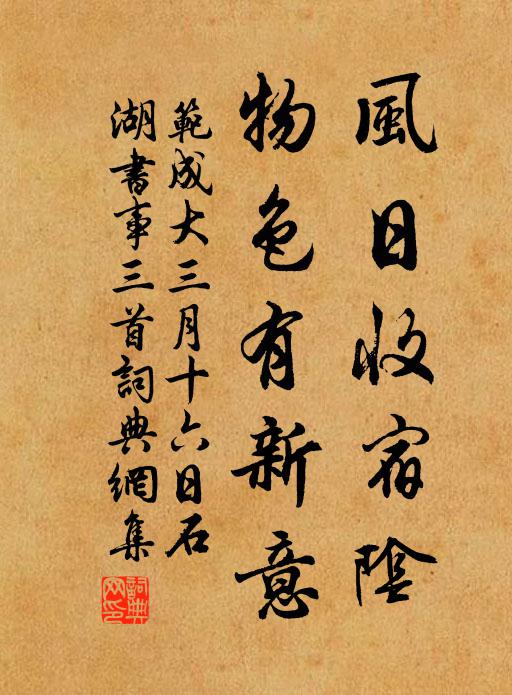 風日收宿陰
物色有新意
範成大三月十六日石
湖書事三首詞典網集
詞典網印